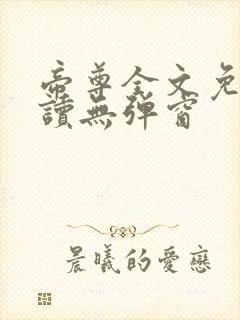 帝尊全文免
讀無彈窗
晨曦的愛戀